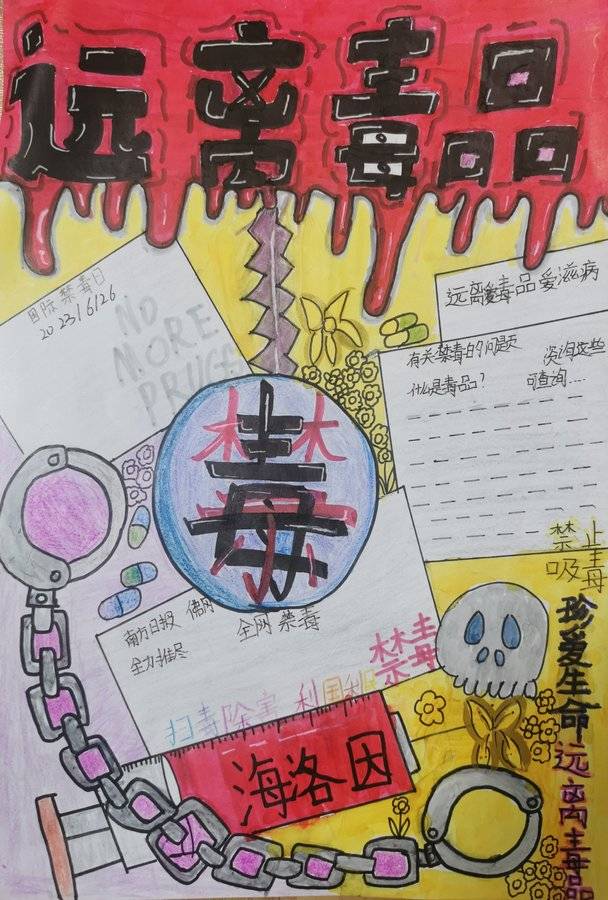 远离毒品
国际禁毒日
2023/6/26
NO
MORE
远离毒品爱滋病
有关禁毒的问题 咨询这些
什么是毒品? 可查询....
禁
毒
南方日报
全网禁毒
全力推尽
禁毒
扫毒除害 利国利
海洛因
禁止
吸毒
珍爱生命
远离毒品